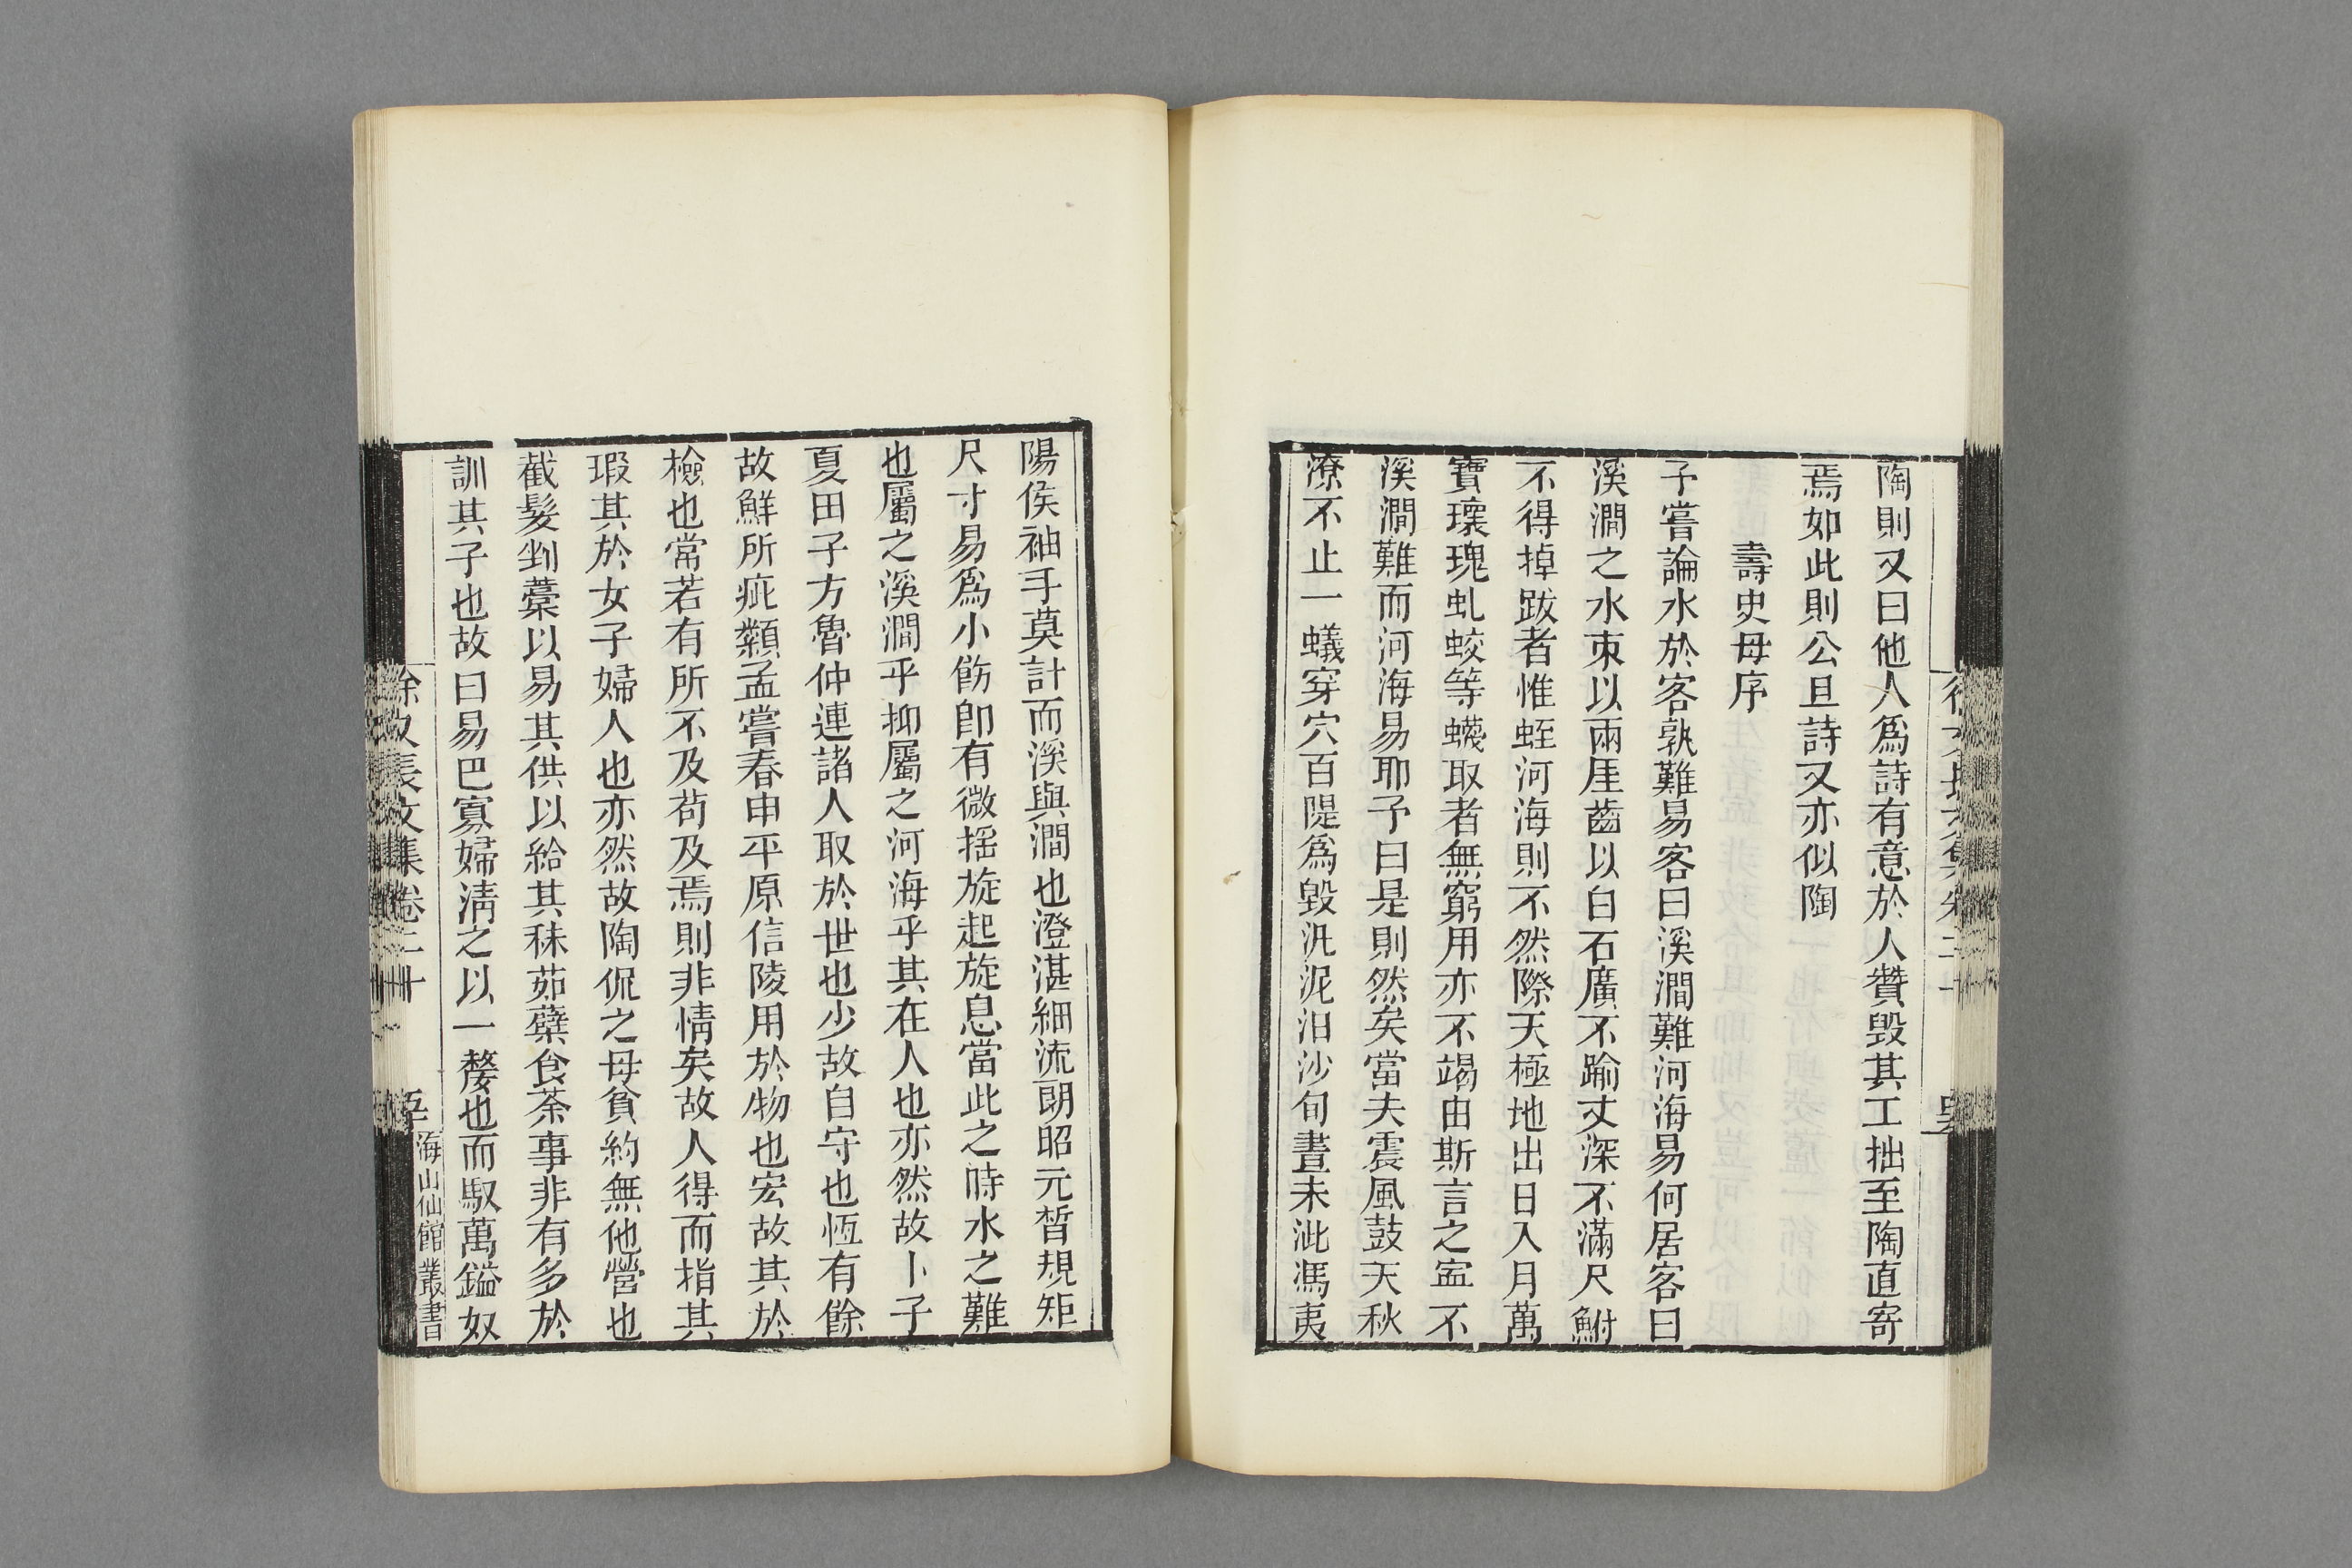 陶則又曰他人爲詩有意於人贊毀其工拙至陶直寄
焉如此則公且詩又亦似陶
壽史母序
子嘗論水於客孰難易客曰溪澗難河海易何居客曰
溪澗之水朿以兩厓齒以白石廣不踰丈深不滿尺鮒
不得掉跋者惟蛭河海則不然際天極地出日入月萬
寶瓌瑰虬蛟等蠛取者無窮用亦不竭由斯言之寍不
溪澗難而河海易耶予曰是則然矣當夫震風鼓天秋
潦不止一蟻穿穴百隄爲毀汎泥汨沙旬晝未泚馮夷
陽侯袖手莫計而溪與澗也澄湛細流朗昭元晳規矩
尺寸易爲小飭卽有微搖旋起旋息當此之時水之難
也屬之溪澗乎抑屬之河海乎其在人也亦然故卜子
夏田子方魯仲連諸人取於世也少故自守也恆有餘
故鮮所疵纇孟嘗春申平原信陵用於物也宏故其於
檢也常若有所不及苟及焉則非情矣故人得而指其
瑕其於女子婦人也亦然故陶侃之母貧約無他營也
截髮剉藁以易其供以給其秣茹蘗食荼事非有多於
訓其子也故曰易巴寡婦淸之以一嫠也而馭萬鎰奴
徐文長文集卷二十
海山仙館叢書